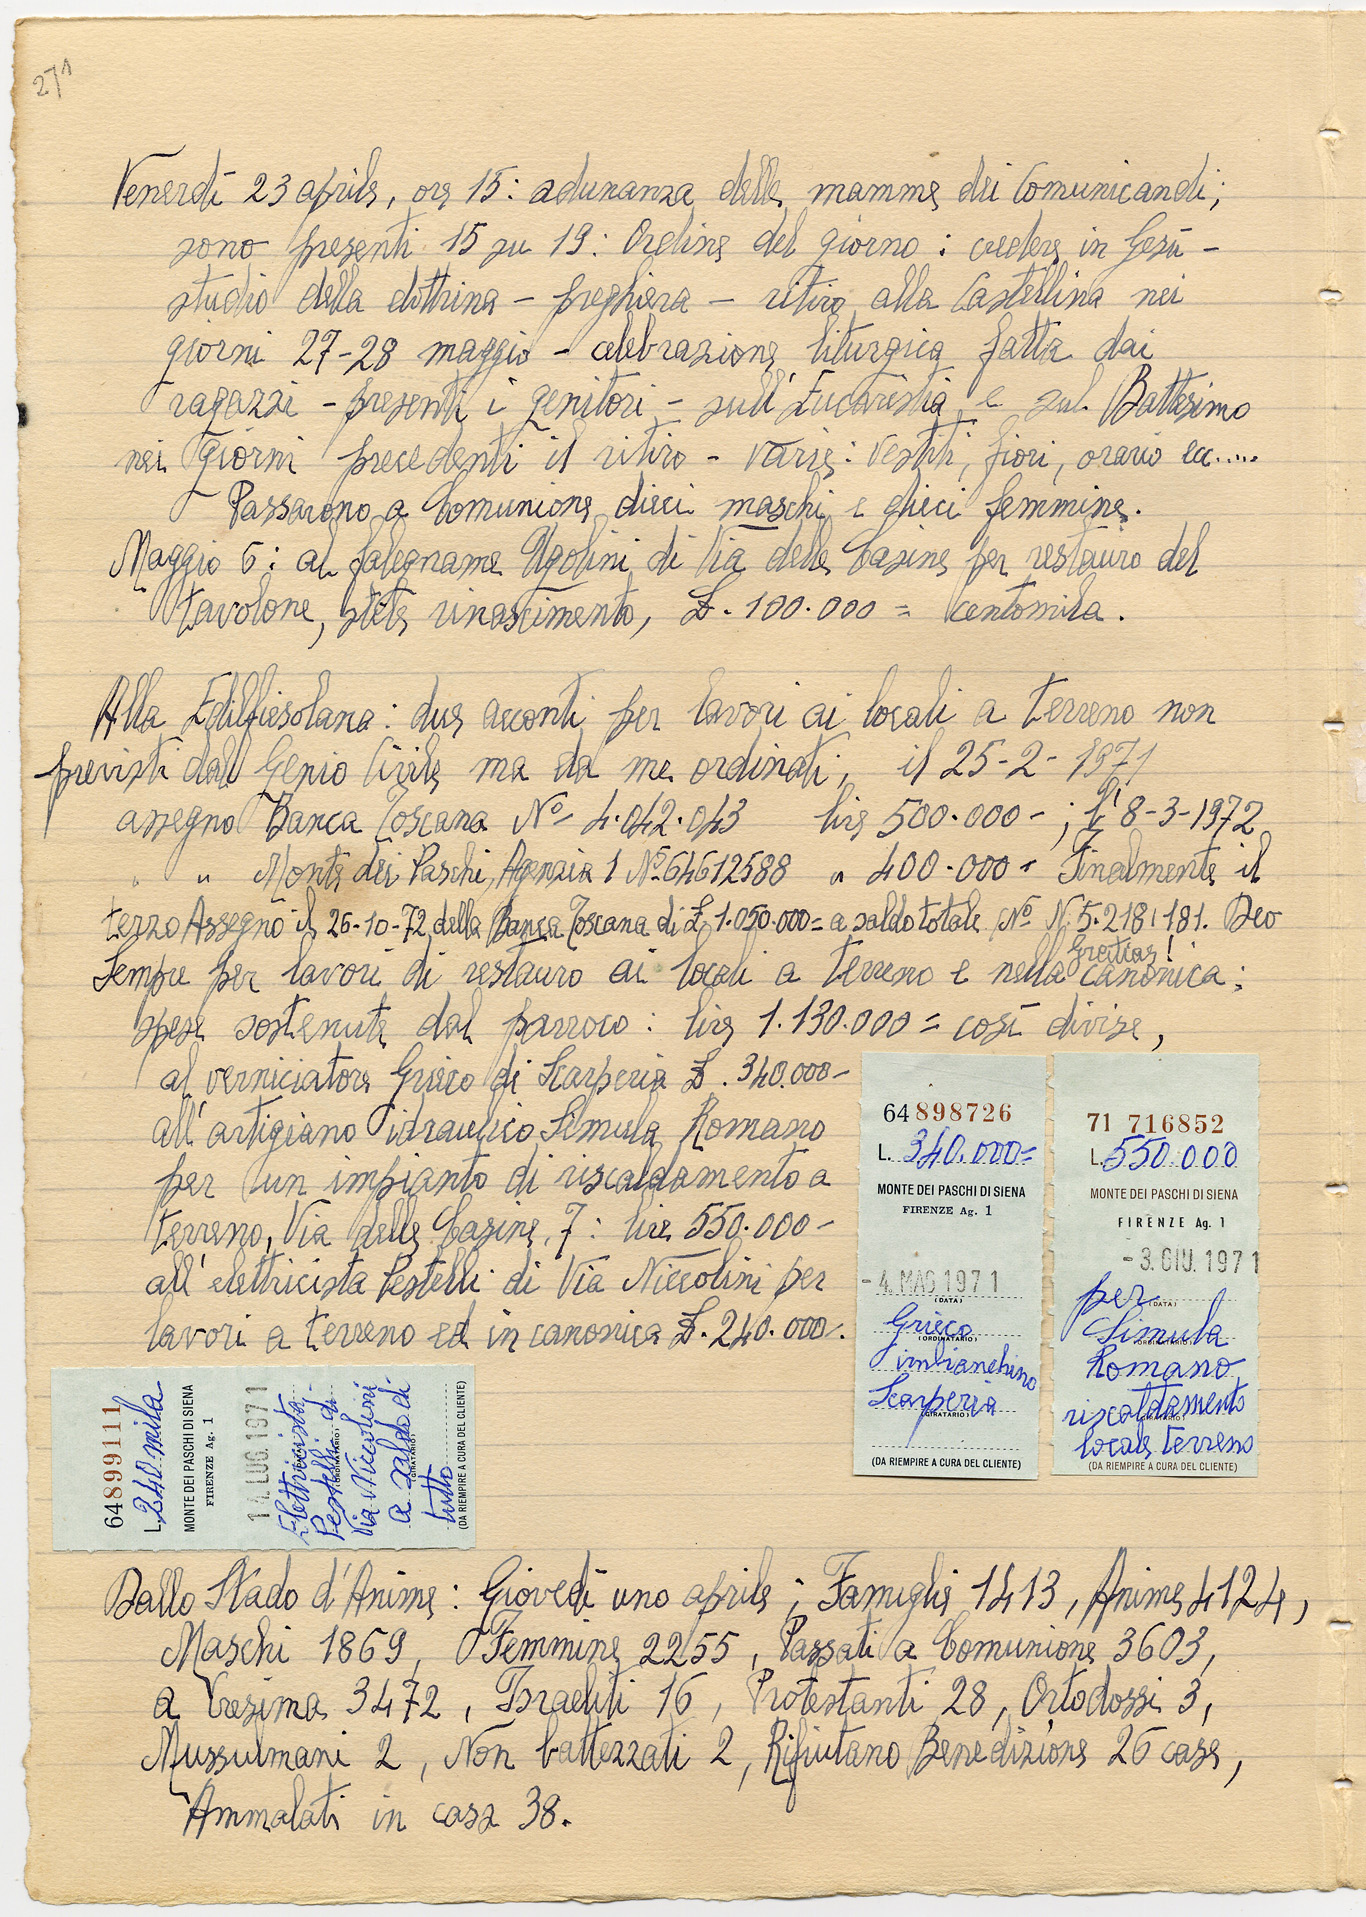 271
Venerdì 23 aprile, ore 15: adunanza delle mamme dei Comunicandi;
sono presenti 15 su 19: Ordine del giorno: credere in Gesù -
studio della dottrina - preghiera - ritiro alla Castellina nei
giorni 27-28 maggio - celebrazione liturgica fatta dai
ragazzi - presenti i genitori - sull'Eucaristia e sul Battesimo
nei giorni precedenti il ritiro - varie: vestiti, fiori, orario ecc.....
Passarono a Comunione dieci maschi e dieci femmine.
Maggio 6: al falegname Ugolini di Via delle Casine per restauro del
tavolone, stile rinascimento, £. 100.000 = centomila.
Alla Edilfiesolana: due acconti per lavori ai locali a terreno non
previsti dal Genio Civile ma da me ordinati; il 25-2-1971
assegno Banca Toscana Nº 4.042.043 lire 500.000 - ; l'8-3-1972
" " Monte dei Paschi, Agenzia 1 Nº 64612588 " 400.000 = Finalmente il
terzo Assegno il 26-10-72 della Banca Toscana di £ 1.050.000 = a saldo totale Nº N.5.218.181. Deo
Gratias!
Sempre per lavori di restauro ai locali a terreno e nella canonica:
spese sostenute dal parroco: lire 1.130.000 = così divise,
al verniciatore Grieco di Scarperia £. 340.000 -
all'artigiano idraulico Simula Romano
per un impianto di riscaldamento a
terreno, Via delle Casine, 7: lire 550.000 -
all'elettricista Pestelli di Via Niccolini per
lavori a terreno ed in canonica £. 240.000.
64 898726
L. 340.000=
MONTE DEI PASCHI DI SIENA
FIRENZE Ag. 1
-4. MAG 1971
(DATA)
Grieco
(ORDINATARIO)
imbianchino
Scarperia
(GIRATARIO)
(DA RIEMPIRE A CURA DEL CLIENTE)
71 716852
L. 550.000
MONTE DEI PASCHI DI SIENA
FIRENZE Ag. 1
-3. GIU. 1971
per
(DATA)
Simula
(ORDINATARIO)
Romano
riscaldamento
(GIRATARIO)
locale terreno
(DA RIEMPIRE A CURA DEL CLIENTE)
64899111
L. 240 mila
MONTE DEI PASCHI DI SIENA
FIRENZE Ag. 1
14 LUG. 1971
Elettricista
Pestelli di
(ORDINATARIO)
Via Niccolini
a saldo di
(GIRATARIO)
tutto
(DA RIEMPIRE A CURA DEL CLIENTE)
Dallo Stado d'Anime: Giovedì uno aprile; Famiglie 1413, Anime 4124,
Maschi 1869, Femmine 2255, Passati a Comunione 3603,
a Cresima 3472, Israeliti 16, Protestanti 28, Ortodossi 3,
Mussulmani 2, Non battezzati 2, Rifiutano Benedizione 26 case,
Ammalati in casa 38.